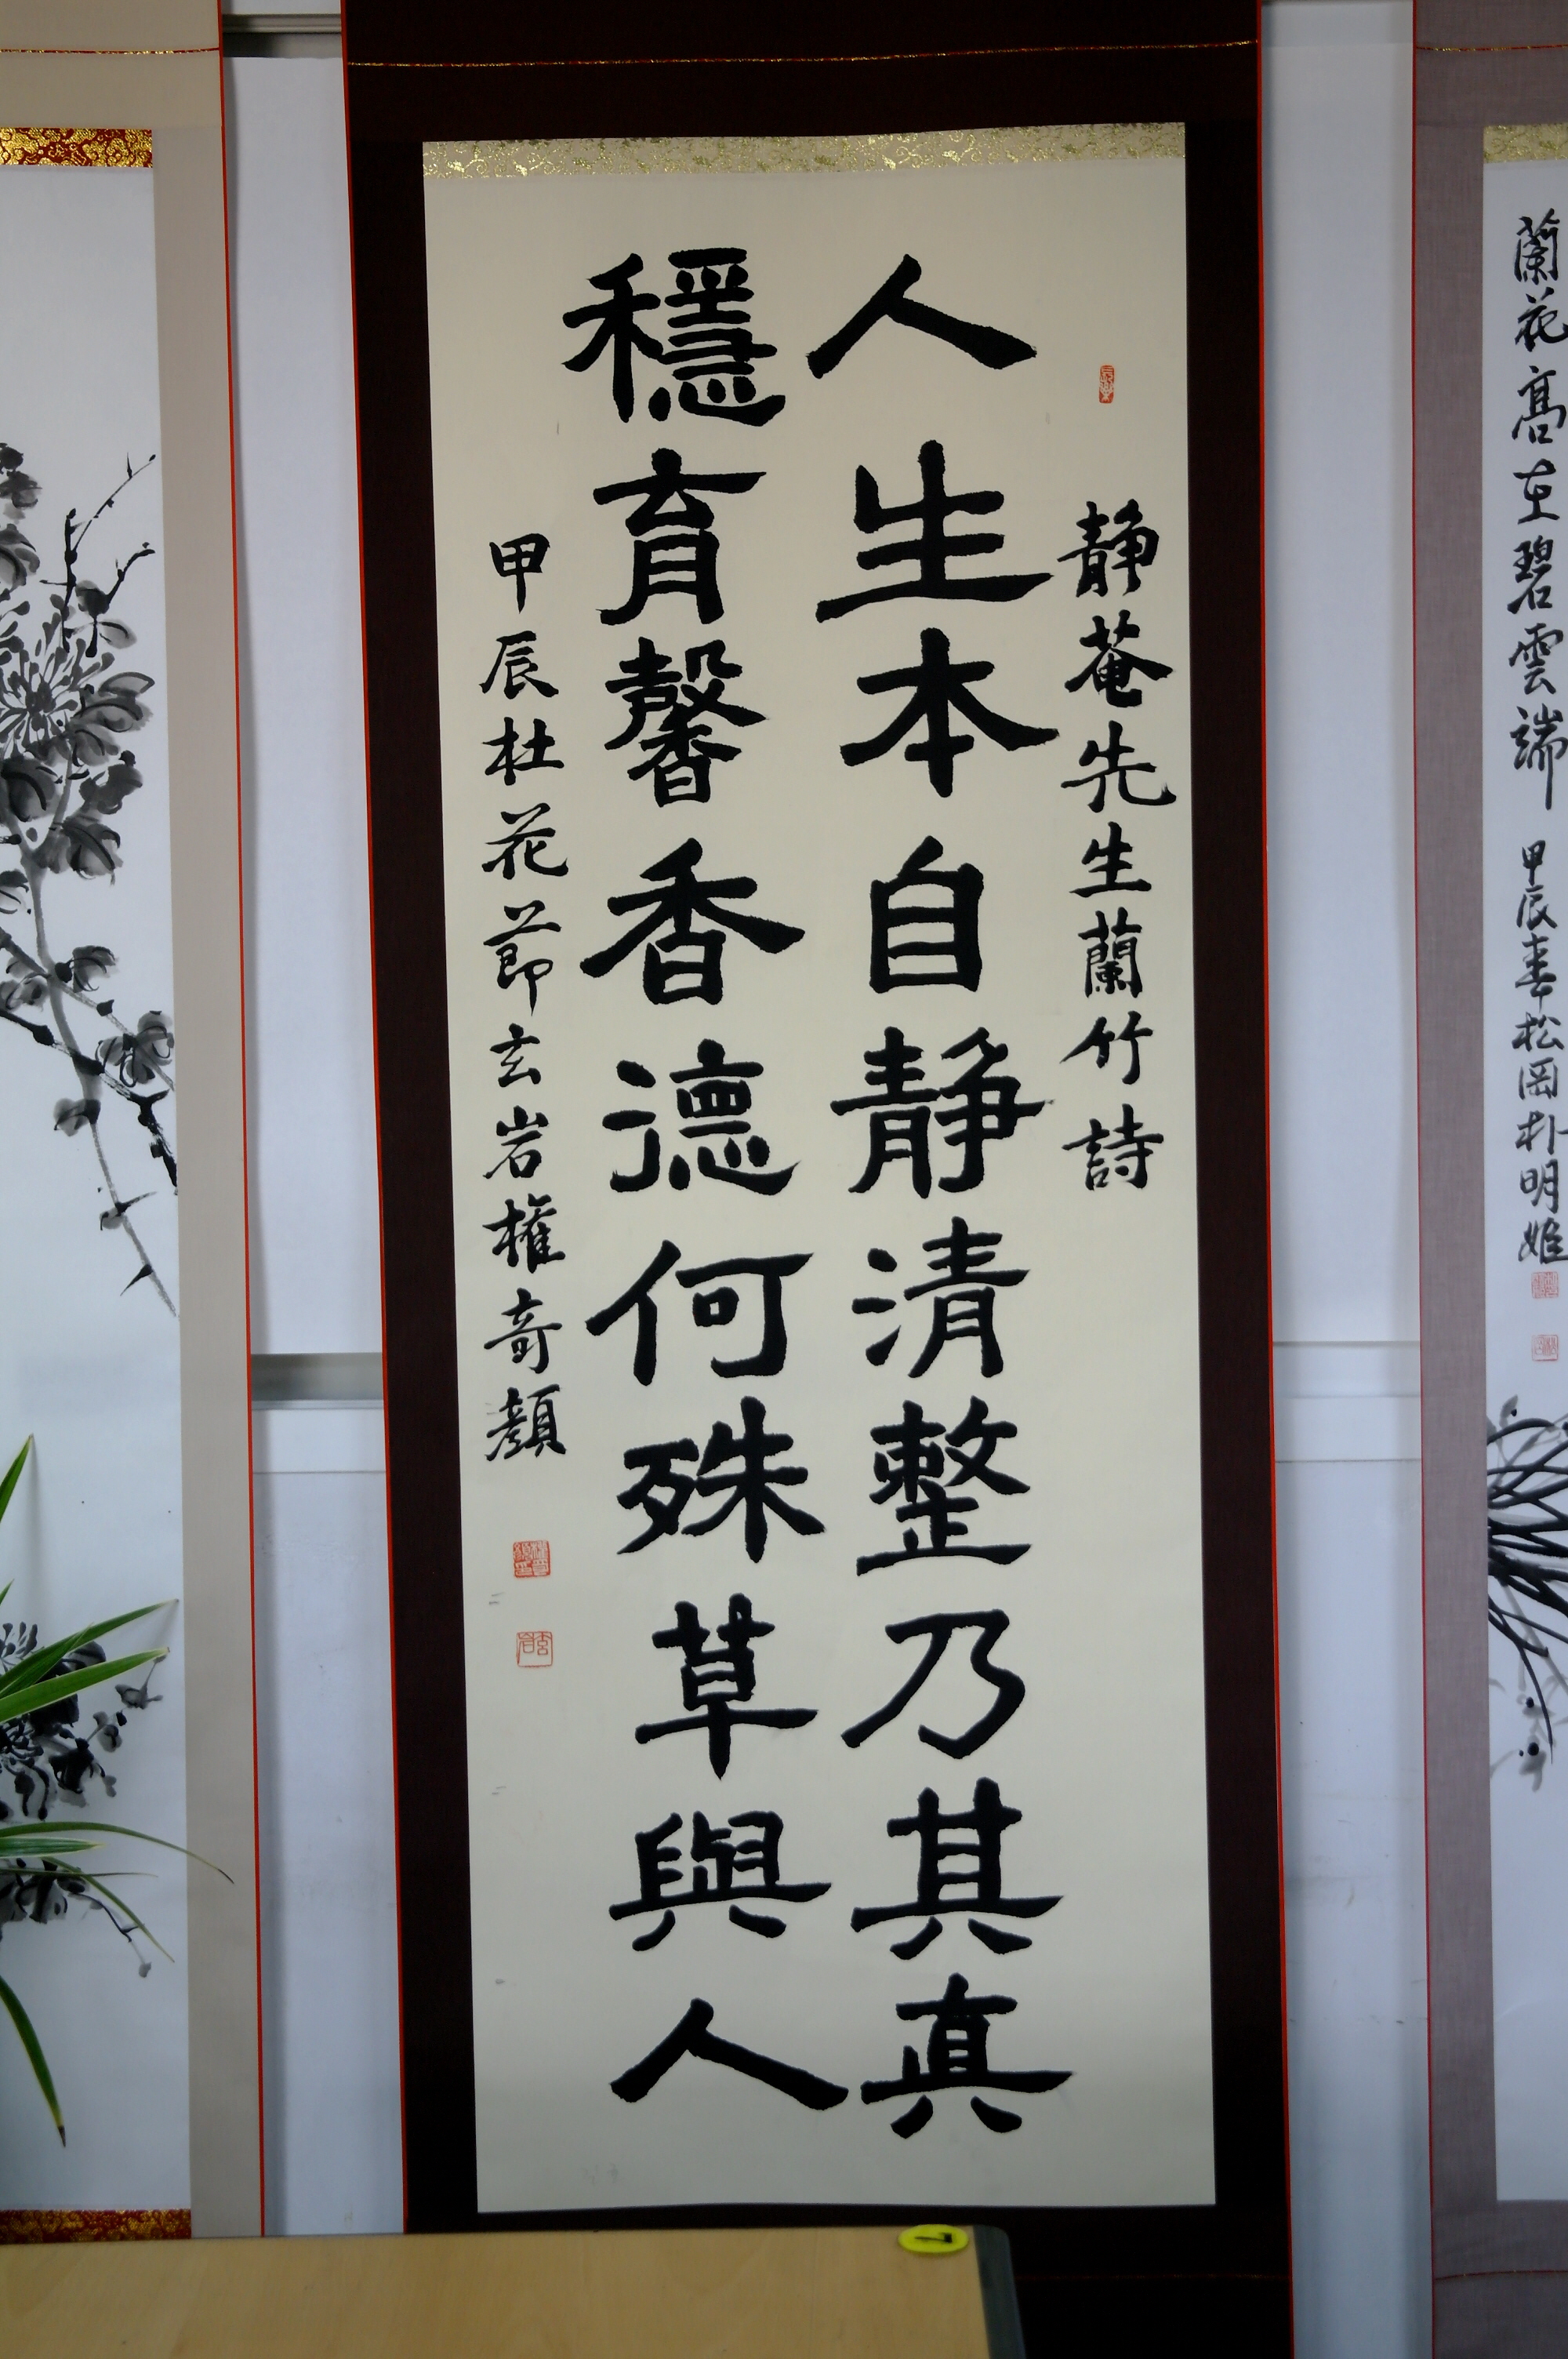 蘭花高在碧雲端
甲辰春松岡朴明姬
靜菴先生蘭竹詩
人生本自靜清整乃其真
穩育馨香德何殊草與人
甲辰杜花節玄岩權奇顏